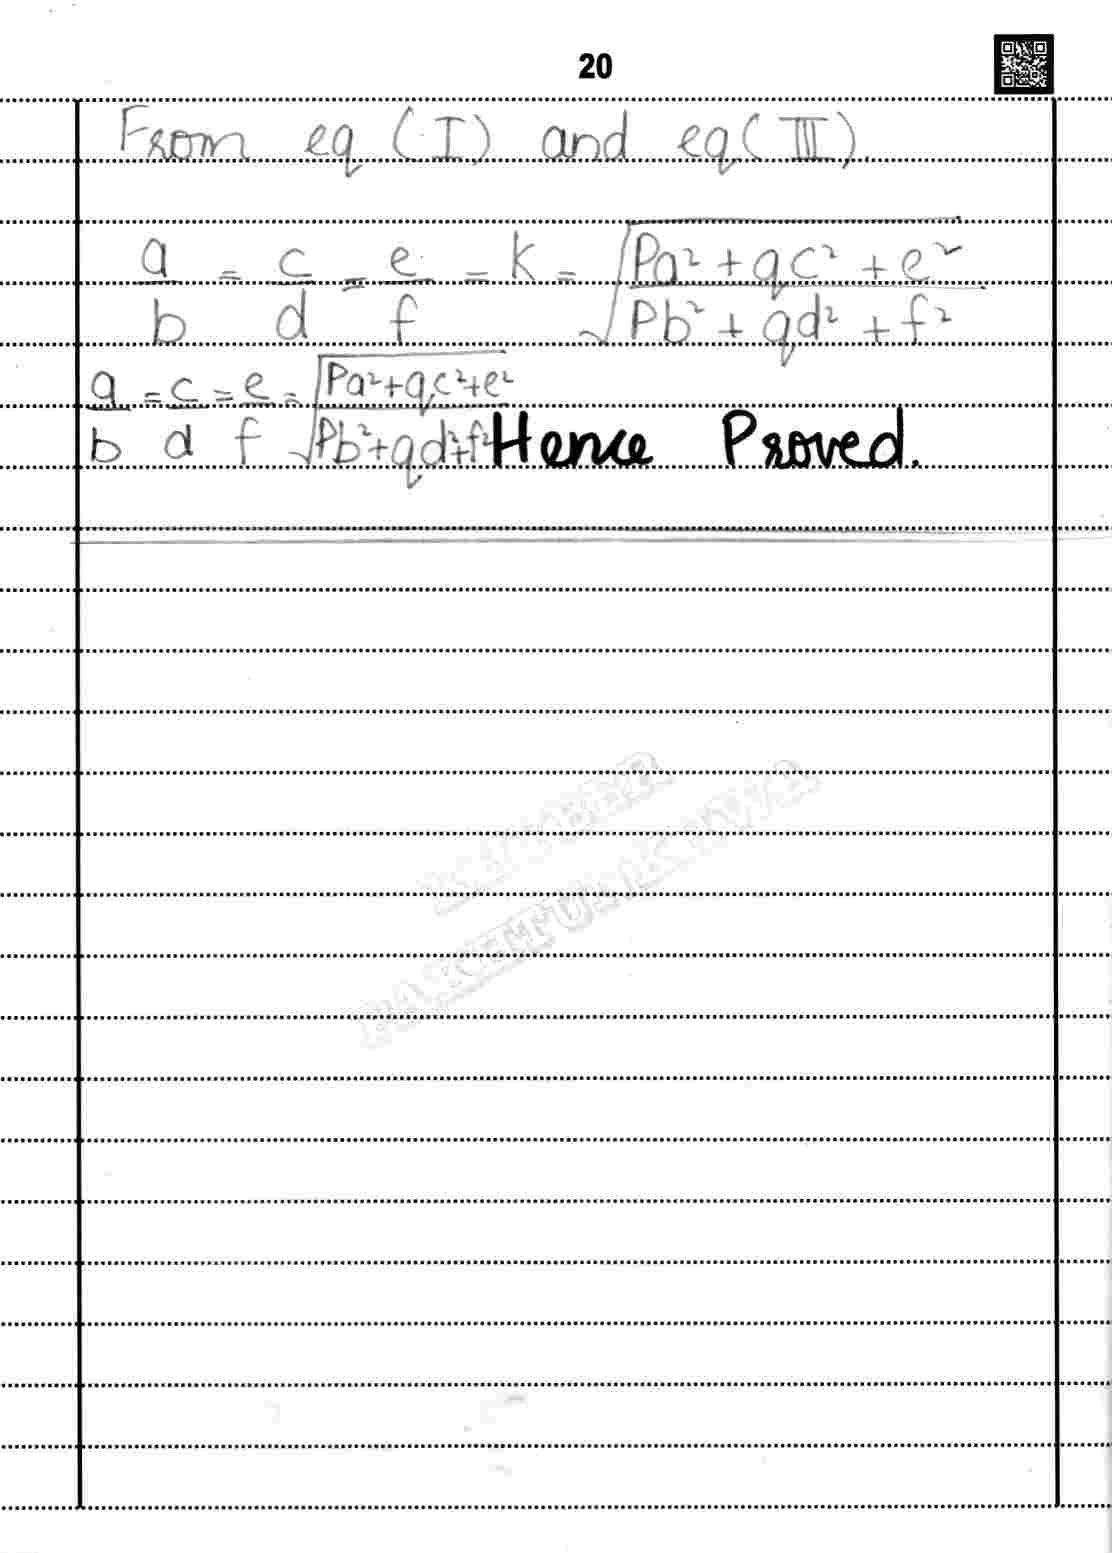 20
From eq (I) and eq (III).
a/b = c/d = e/f = k = √(Pa² + qc² + e² / Pb² + qd² + f²)
a/b = c/d = e/f = √(Pa²+qc²+e² / Pb²+qd²+f²) Hence Proved.
KHYBER
PAKHTUNKHWA